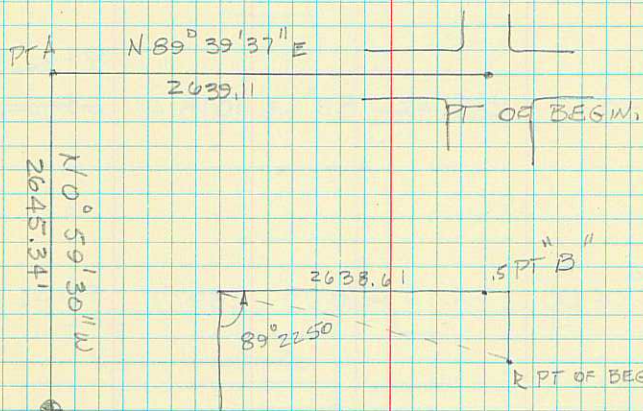 PT A
N 89° 39' 37" E
2639.11
PT OF BEGIN.
N 0° 59' 30" W
2645.34'
2638.61
.5 PT "B"
89° 22 50
PT OF BEG